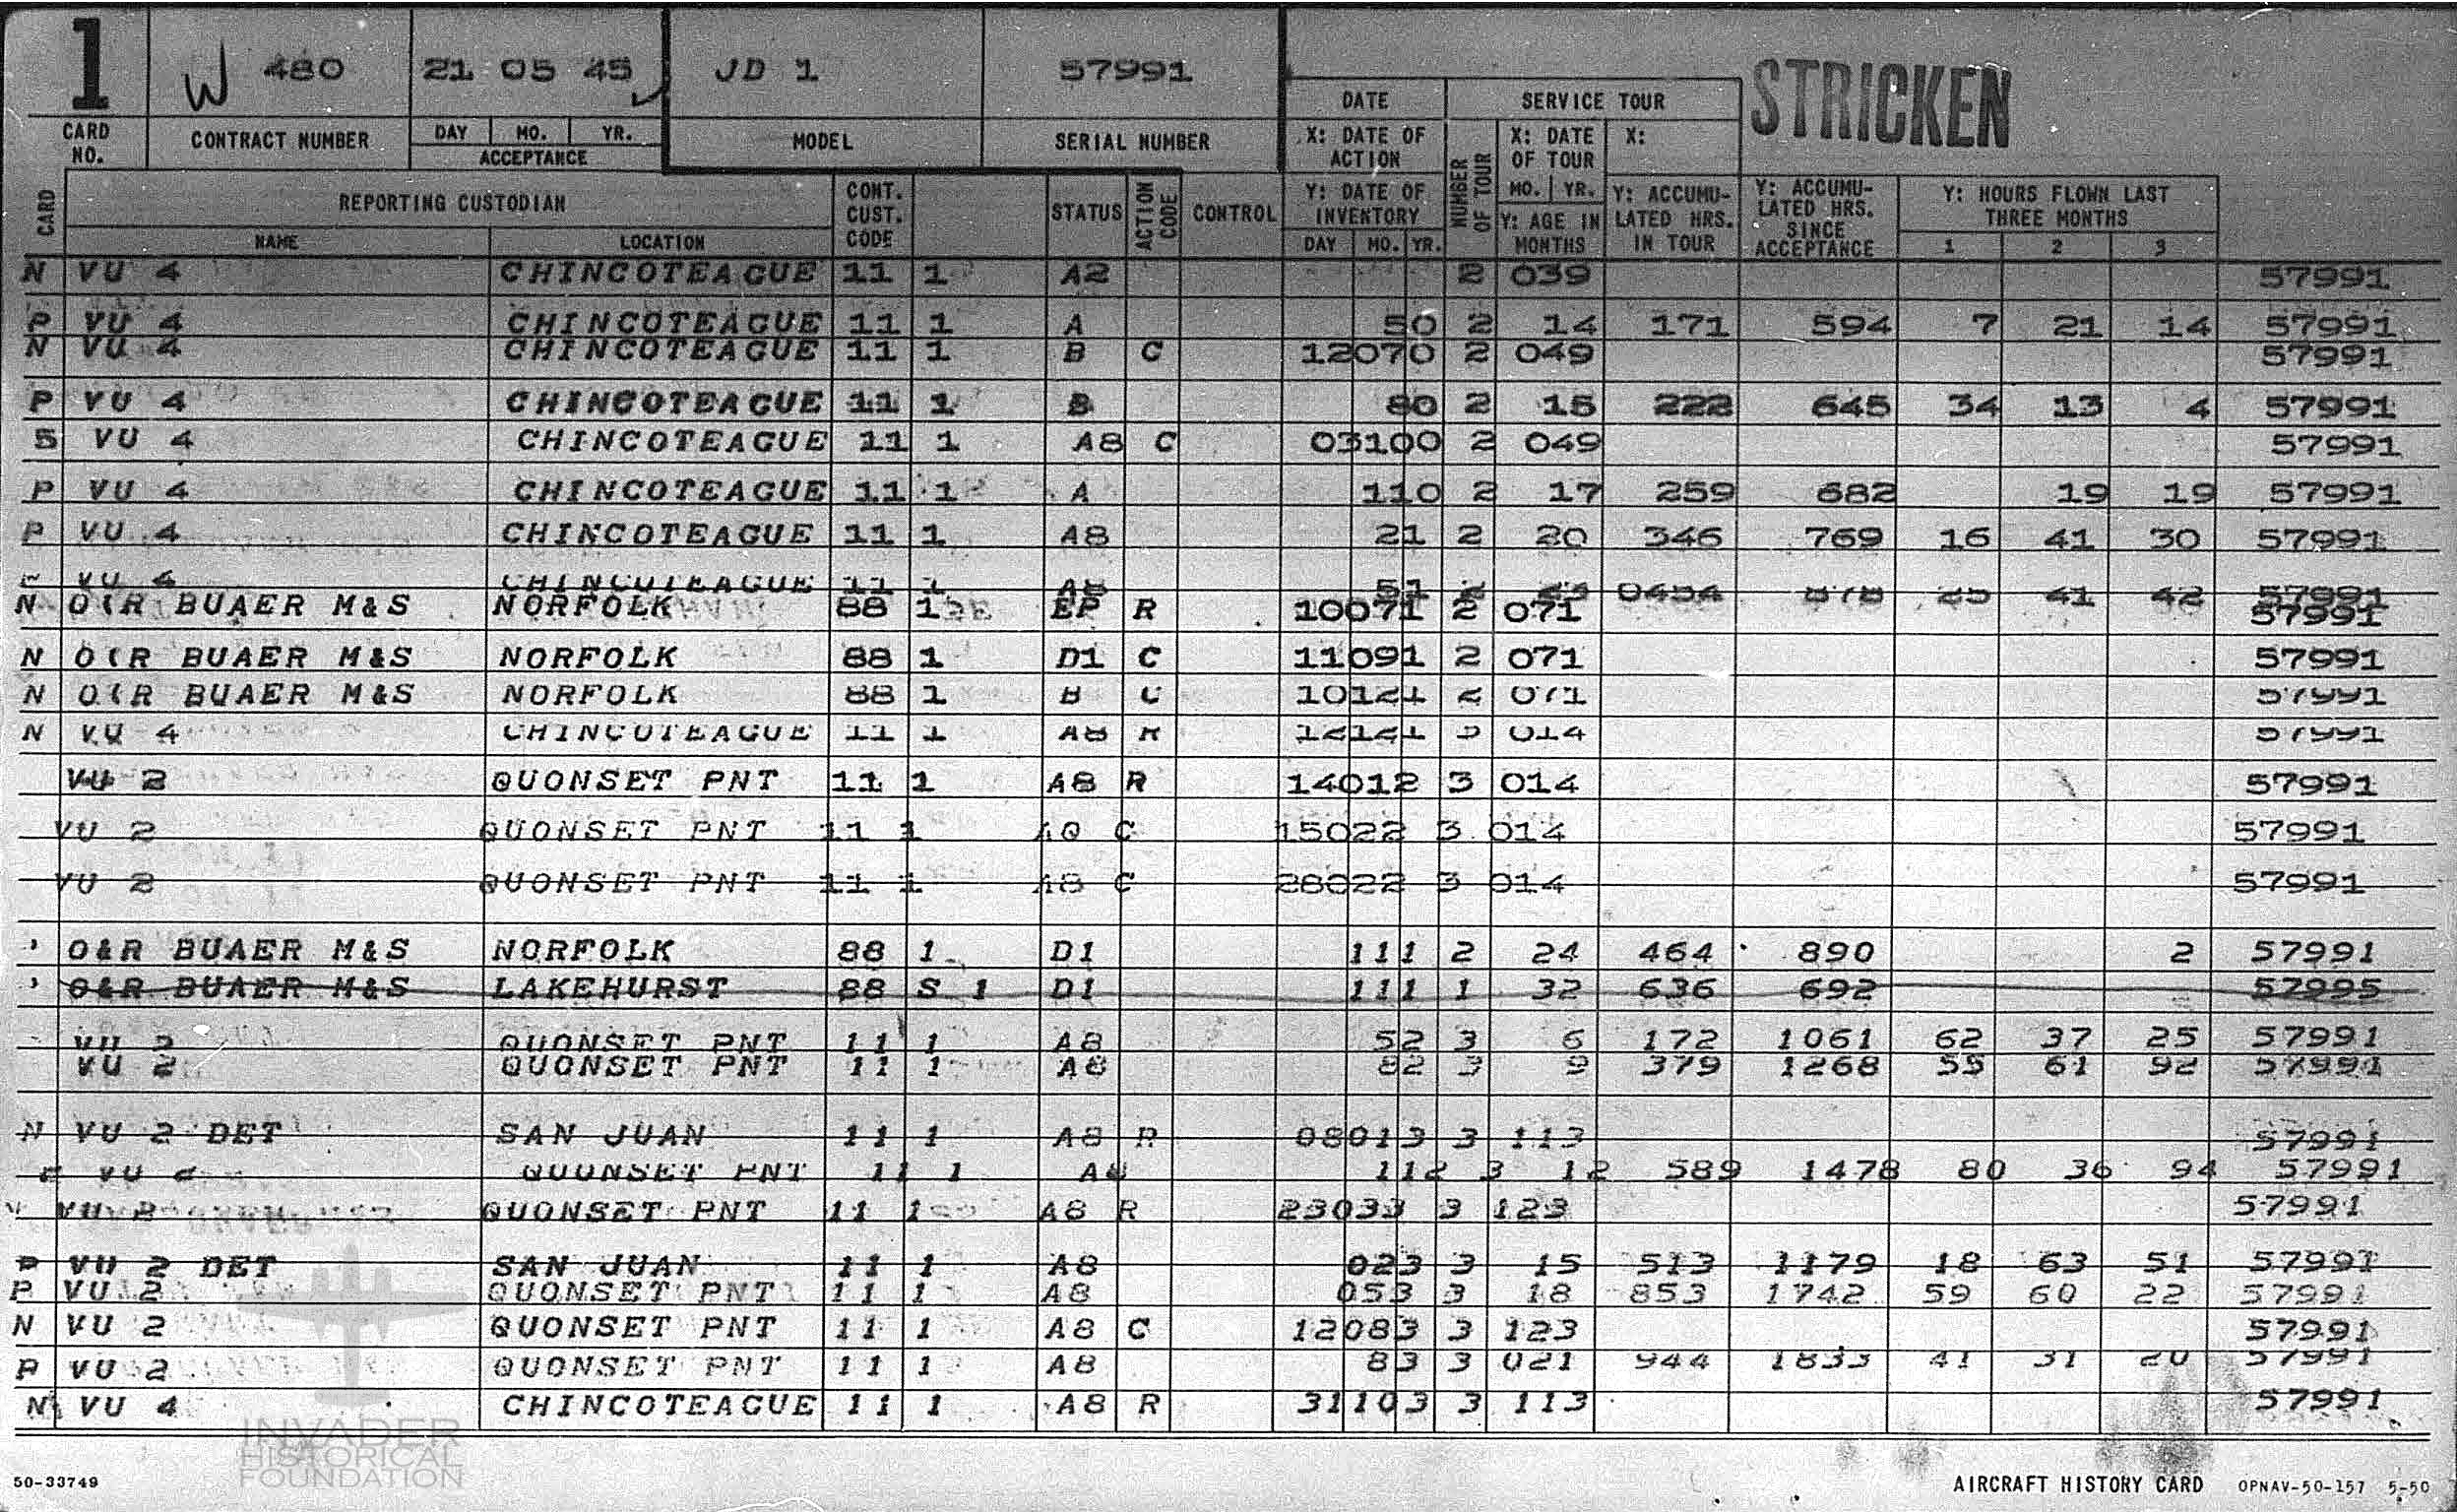 1 W 480 21 05 45 JD 1 57991 STRICKEN
CARD NO. CONTRACT NUMBER DAY MO. YR. ACCEPTANCE MODEL SERIAL NUMBER
DATE SERVICE TOUR
X: DATE OF ACTION NUMBER OF TOUR X: DATE OF TOUR X:
CARD REPORTING CUSTODIAN CONT. CUST. CODE STATUS ACTION CODE CONTROL Y: DATE OF INVENTORY MO. YR. Y: AGE IN MONTHS Y: ACCUMU-LATED HRS. IN TOUR Y: ACCUMU-LATED HRS. SINCE ACCEPTANCE Y: HOURS FLOWN LAST THREE MONTHS
NAME LOCATION DAY MO. YR. 1 2 3
N VU 4 CHINCOTEAGUE 11 1 A2 2 039 57991
P VU 4 CHINCOTEAGUE 11 1 A 50 2 14 171 594 7 21 14 57991
N VU 4 CHINCOTEAGUE 11 1 B C 12070 2 049 57991
P VU 4 CHINCOTEAGUE 11 1 B 80 2 15 222 645 34 13 4 57991
S VU 4 CHINCOTEAGUE 11 1 A8 C 03100 2 049 57991
P VU 4 CHINCOTEAGUE 11 1 A 110 2 17 259 682 19 19 57991
P VU 4 CHINCOTEAGUE 11 1 A8 21 2 20 346 769 16 41 30 57991
VU 4 CHINCOTEAGUE 11 1 A8 51 2 23 0454 878 25 41 42 57991
N O(R BUAER M&S NORFOLK 88 1 EP R 10071 2 071 57991
N O(R BUAER M&S NORFOLK 88 1 D1 C 11091 2 071 57991
N O(R BUAER M&S NORFOLK 88 1 B C 10121 2 071 57991
N VU 4 CHINCOTEAGUE 11 1 A8 R 12121 3 014 57991
VU 2 QUONSET PNT 11 1 A8 R 14012 3 014 57991
VU 2 QUONSET PNT 11 1 A0 C 15022 3 014 57991
VU 2 QUONSET PNT 11 1 A8 C 28022 3 014 57991
O&R BUAER M&S NORFOLK 88 1 D1 111 2 24 464 890 2 57991
O&R BUAER M&S LAKEHURST 88 S 1 D1 111 1 32 636 692 57995
VU 2 QUONSET PNT 11 1 A8 52 3 6 172 1061 62 37 25 57991
VU 2 QUONSET PNT 11 1 A8 82 3 9 379 1268 55 61 92 57991
N VU 2 DET SAN JUAN 11 1 A8 R 08013 3 113 57991
VU 2 QUONSET PNT 11 1 A8 112 3 12 589 1478 80 36 94 57991
VU 2 QUONSET PNT 11 1 A8 R 23033 3 123 57991
P VU 2 DET SAN JUAN 11 1 A8 023 3 15 513 1179 18 63 51 57991
P VU 2 QUONSET PNT 11 1 A8 053 3 18 853 1742 59 60 22 57991
N VU 2 QUONSET PNT 11 1 A8 C 12083 3 123 57991
P VU 2 QUONSET PNT 11 1 A8 83 3 021 944 1833 41 31 20 57991
N VU 4 CHINCOTEAGUE 11 1 A8 R 31103 3 113 57991
INVADER
HISTORICAL
FOUNDATION
50-33749 AIRCRAFT HISTORY CARD OPNAV-50-157 5-50